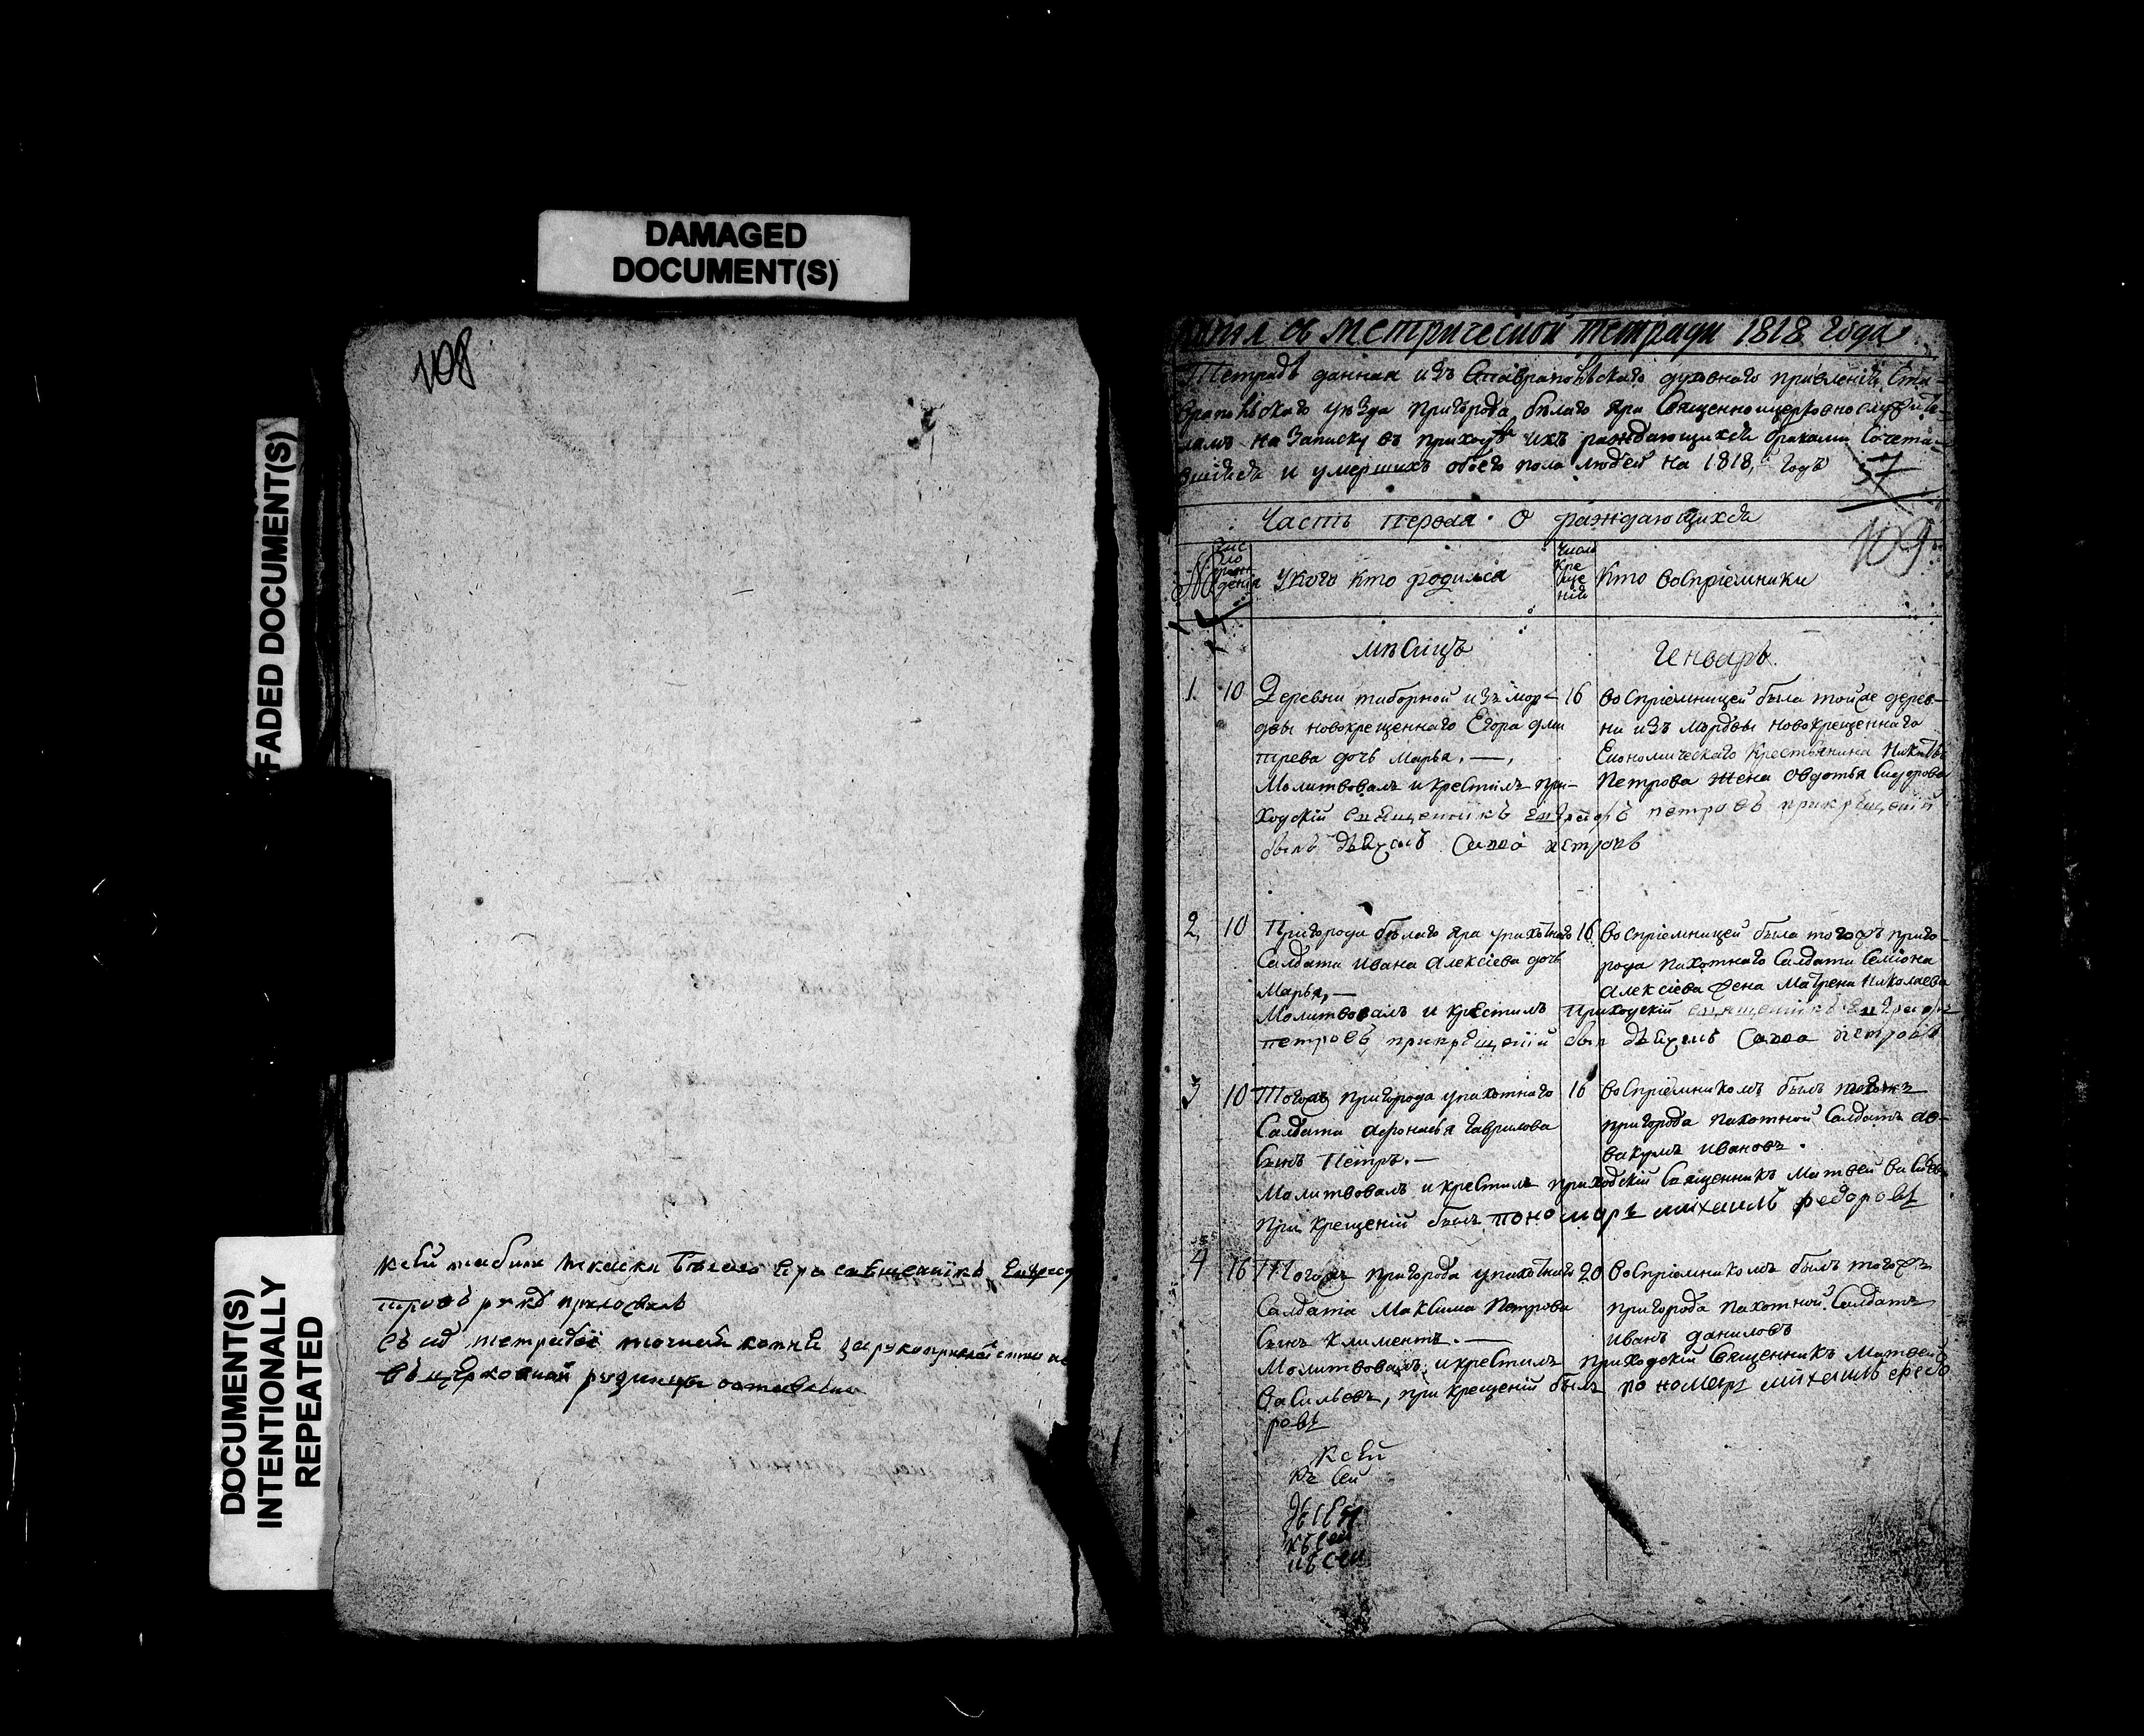 DAMAGED
DOCUMENT(S)
FADED DOCUMENT(S)
DOCUMENT(S)
INTENTIONALLY
REPEATED
108
Белого Яра священникъ
въ церковной ризницы
съ метрической тетради 1818 года
Тетрадь данная изъ Ставропольскаго духовнаго правленія Ста-
вропольскаго уѣзда пригорода бѣлаго яра Священноцерковнослужите-
лямъ на записку въ приходѣ ихъ раждающихся браками Сочета-
вшихся и умершихъ обоего пола людей на 1818, годъ 57
Часть первая О раждающихся
109
№
Число рождения
У кого кто родился
Число крещеній
Кто воспріемники
мѣсяцъ Генварь.
1. 10 Деревни таборной изъ мор-
двы новокрещеннаго Егора дми
трева дочь Марья. —
Молитвовалъ и крестилъ при-
ходскій священникъ петровъ прикрѣщеніи
былъ Савва петровъ
16 воспріемницей была тойже дерев-
ни изъ мордвы новокрещеннаго
Економическаго крестьянина Никиты
Петрова жена Овдотья Сидорова
2. 10 Пригорода бѣлаго яра упахотнаго
Салдата ивана Алексіева дочь
Марья, —
Молитвовалъ и крестилъ приходскій священникъ
петровъ прикрѣщеніи был Савва петровъ
16 воспріемницей была тогожъ приго-
рода пахотнаго Салдата Семіона
Алексіева жена Матрена Николаева
3 10 Тогожъ пригорода упахотнаго
Салдата Афонасья Гаврилова
Сынъ Петръ. —
Молитвовалъ и крестилъ приходскій Священникъ Матвей Васильевъ
при крещеніи былъ пономарь михаилъ федоровъ
16 воспріемникомъ былъ тогожъ
пригорода пахотной Салдатъ ав-
вакумъ ивановъ.
4 16 Тогожъ пригорода упахотнаго
Салдата Максима Петрова
Сынъ Климентъ. —
Молитвовалъ и крестилъ приходскій Священникъ Матвей
Васильевъ, при крещеніи былъ пономарь михаилъ федо
ровъ
20 воспріемникомъ былъ тогожъ
пригорода пахотной Салдатъ
Иванъ даниловъ
Ксей
Къ сей
къ сей